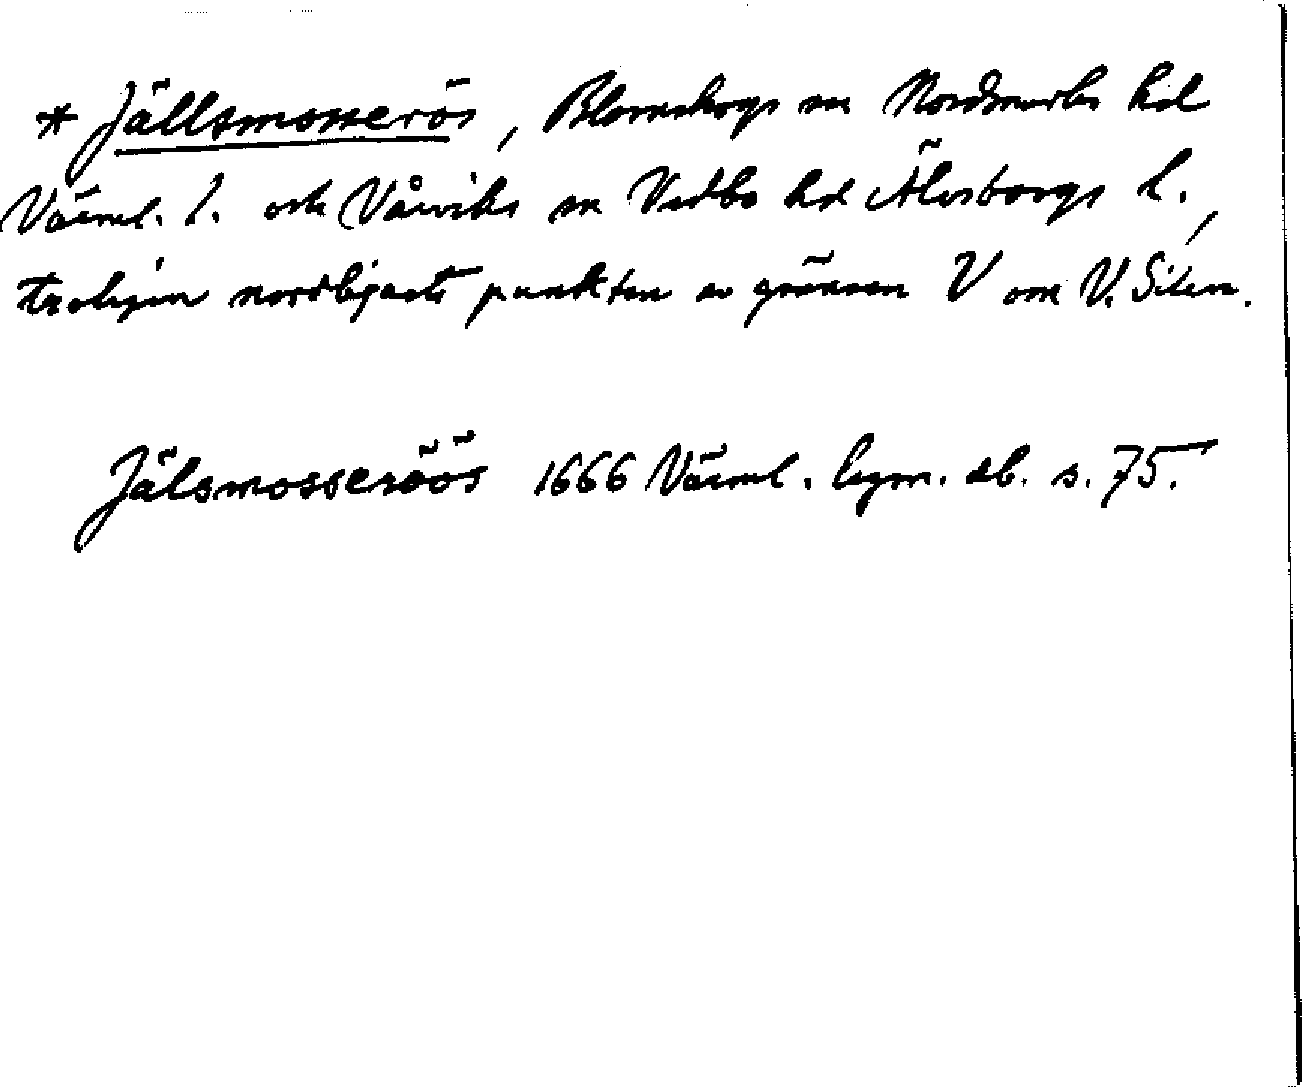 * Jällsmosserös, Blomskogs sn Nordmarks hd
Värml. l. och Vårviks sn Vedbo hd Älvsborgs l.,
troligen nordligaste punkten av gränsen V om V. Silen.
Jälsmosseröös 1666 Värml. lsgm. db. s. 75.